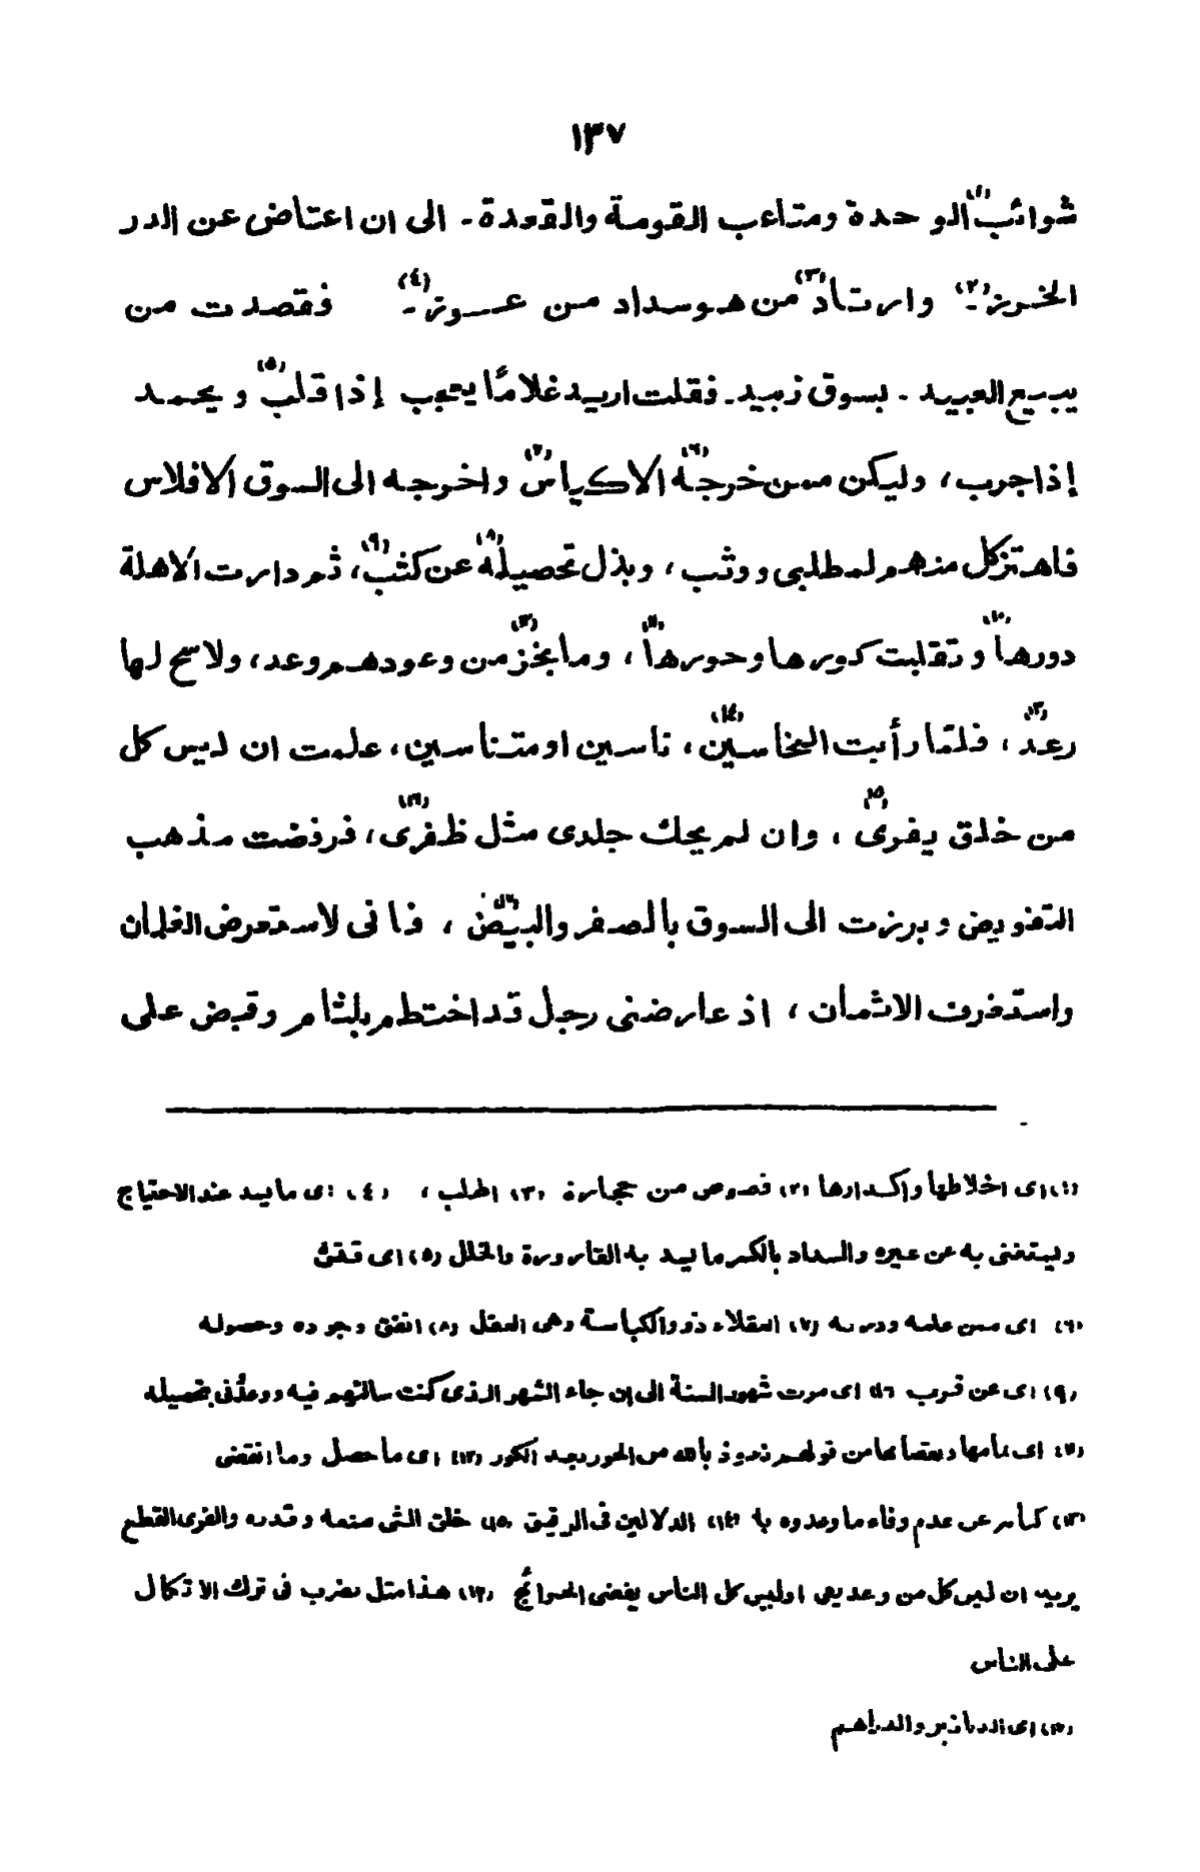 ١٣٧
شوائب(١) الوحدة ومتاعب القومة والقعدة ـ الى ان اعتاض عن الدر
الخرز(٢) ـ وارتاد(٣) من هو سداد من عوز(٤) ـ فقصدت من
يبيع العبيد ـ بسوق زبيد ـ فقلت اريد غلامًا يعجب إذا قلب(٥) و يحمد
إذا جرب ، وليكن ممن خرجه(٦) الاكياس(٧) واخرجه الى السوق الافلاس
فاهتز كل منهم لمطلبى ووثب ، وبذل تحصيله(٨) عن كثب(٩) ، ثم دارت الاهلة
دورها(١٠) و تقلبت كورها وحورها(١١) ، وما نجز(١٢) من وعودهم وعد ، ولا سح لها
رعد(١٣) ، فلمّا رأيت النخاسين(١٤) ، ناسين او متناسين ، علمت ان ليس كل
من خلق يفرى(١٥) ، وان لم يحك جلدى مثل ظفرى(١٦) ، فرفضت مذهب
التفويض و برزت الى السوق بالصفر والبيض(١٧) ، فانى لاستعرض الغلمان
واستعرف الاثمان ، اذ عارضنى رجل قد اختطم بلثام وقبض على
(١) اى اخلاطها واكدارها (٢) فصوص من حجارة (٣) اطلب ، (٤) اى ما يسد عند الاحتياج
ويستغنى به عن غيره والسداد بالكسر ما يسد به القارورة والخلل (٥) اى فتش
(٦) اى ممن علمه ودربه (٧) العقلاء ذوو الكياسة وهى العقل (٨) اتفق وجوده وحصوله
(٩) اى عن قرب (١٠) اى مرت شهور السنة الى ان جاء الشهر الذى كنت سالتهم فيه ووعدنى بتحصيله
(١١) اى تمامها ونقصانها من قولهم نعوذ بالله من الحور بعد الكور (١٢) اى ما حصل وما انقضى
(١٣) كناية عن عدم وفاء ما وعدوه به (١٤) الدلالين فى الرقيق (١٥) خلق الشى صنعه وقدره والفرى القطع
يريد ان ليس كل من وعد يفى اوليس كل الناس يقضى الحوائج (١٦) هذا مثل يضرب فى ترك الاتكال
على الناس
(١٧) اى الدنانير والدراهم